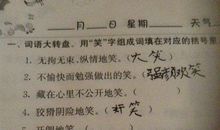 月 日 星期 天气
一、词语大转盘。用“笑”字组成词填在对应的括号里
1. 无拘无束、纵情地笑。(大笑
2. 不愉快而勉强做出的笑。(强颜欢笑
3. 藏在心里不公开地笑。(
4. 狡猾阴险地笑。(奸笑